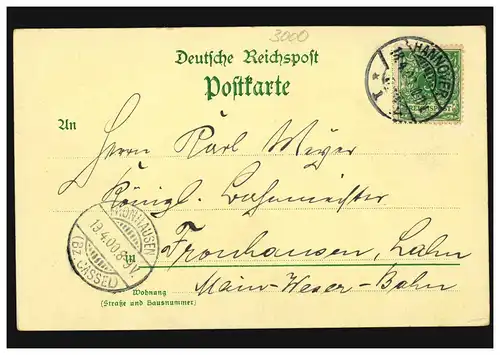 3000
Deutsche Reichspost
Postkarte
HANNOVER
1
An
Herrn Karl Meyer
Königl. Bahnmeister
FRONHAUSEN
19.4.00.8-9V.
(Bz. CASSEL)
in Fronhausen, Lahn
Wohnung
(Straße und Hausnummer)
Main-Weser-Bahn